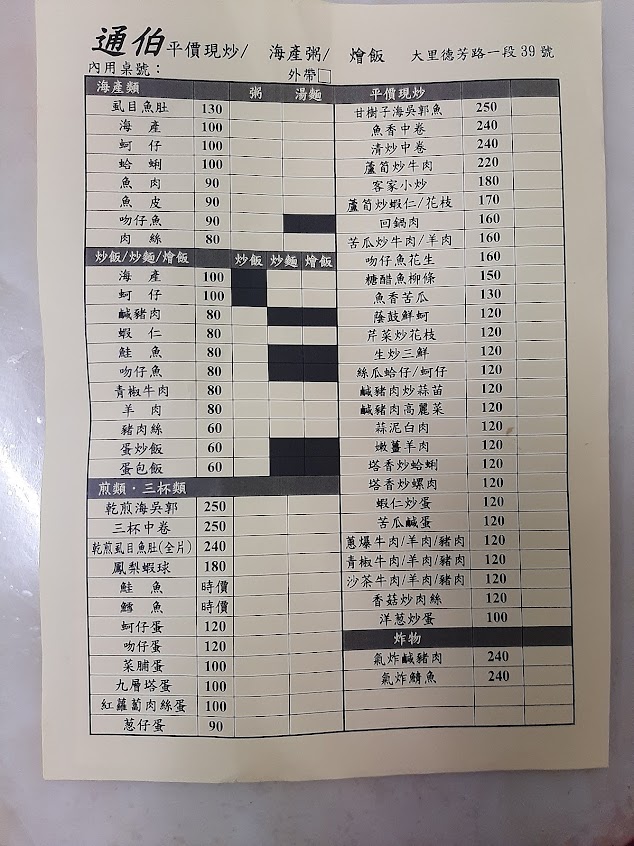 通伯平價現炒/ 海產粥/ 燴飯 大里德芳路一段39號
內用桌號： 外帶□
海產類 粥 湯麵
虱目魚肚 130
海產 100
蚵仔 100
蛤蜊 100
魚肉 90
魚皮 90
吻仔魚 90
肉絲 80
炒飯/炒麵/燴飯 炒飯 炒麵 燴飯
海產 100
蚵仔 100
鹹豬肉 80
蝦仁 80
鮭魚 80
吻仔魚 80
青椒牛肉 80
羊肉 80
豬肉絲 60
蛋炒飯 60
蛋包飯 60
煎類・三杯類
乾煎海吳郭 250
三杯中卷 250
乾煎虱目魚肚(全片) 240
鳳梨蝦球 180
鮭魚 時價
鱈魚 時價
蚵仔蛋 120
吻仔蛋 120
菜脯蛋 100
九層塔蛋 100
紅蘿蔔肉絲蛋 100
蔥仔蛋 90
平價現炒
甘樹子海吳郭魚 250
魚香中卷 240
清炒中卷 240
蘆筍炒牛肉 220
客家小炒 180
蘆筍炒蝦仁/花枝 170
回鍋肉 160
苦瓜炒牛肉/羊肉 160
吻仔魚花生 160
糖醋魚柳條 150
魚香苦瓜 130
蔭鼓鮮蚵 120
芹菜炒花枝 120
生炒三鮮 120
絲瓜蛤仔/蚵仔 120
鹹豬肉炒蒜苗 120
鹹豬肉高麗菜 120
蒜泥白肉 120
嫩薑羊肉 120
塔香炒蛤蜊 120
塔香炒螺肉 120
蝦仁炒蛋 120
苦瓜鹹蛋 120
蔥爆牛肉/羊肉/豬肉 120
青椒牛肉/羊肉/豬肉 120
沙茶牛肉/羊肉/豬肉 120
香菇炒肉絲 120
洋蔥炒蛋 100
炸物
氣炸鹹豬肉 240
氣炸鯖魚 240